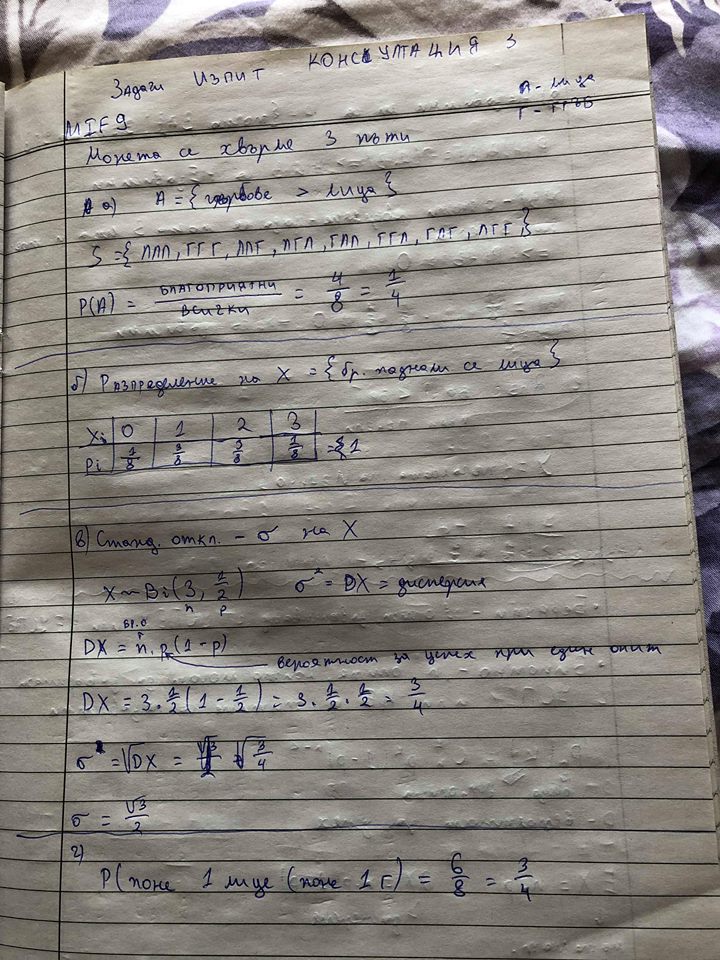 Задачи ИЗПИТ КОНСУЛТАЦИЯ 3
Л - лица
Г - ГРЪБ
MIF9
Монета се хвърля 3 пъти
а) A = {гърбове > лица}
S = {ЛЛЛ, ГГГ, ЛЛГ, ЛГЛ, ГЛЛ, ГГЛ, ГЛГ, ЛГГ}
P(A) = БЛАГОПРИЯТНИ / ВСИЧКИ = 4/8 = 1/4
б) Разпределение на X = {бр. паднали се лица}
Xi 0 1 2 3
Pi 1/8 3/8 3/8 1/8 = 1
в) Станд. откл. - σ на X
X ~ Bi(3, 1/2) σ² = DX = дисперсия
n p
БР.О
DX = n.p(1-p)
вероятност за успех при един опит
DX = 3.1/2(1 - 1/2) = 3.1/2.1/2 = 3/4
σ = √DX = √3/4
σ = √3/2
г)
P(поне 1 лице (поне 1 Г) = 6/8 = 3/4